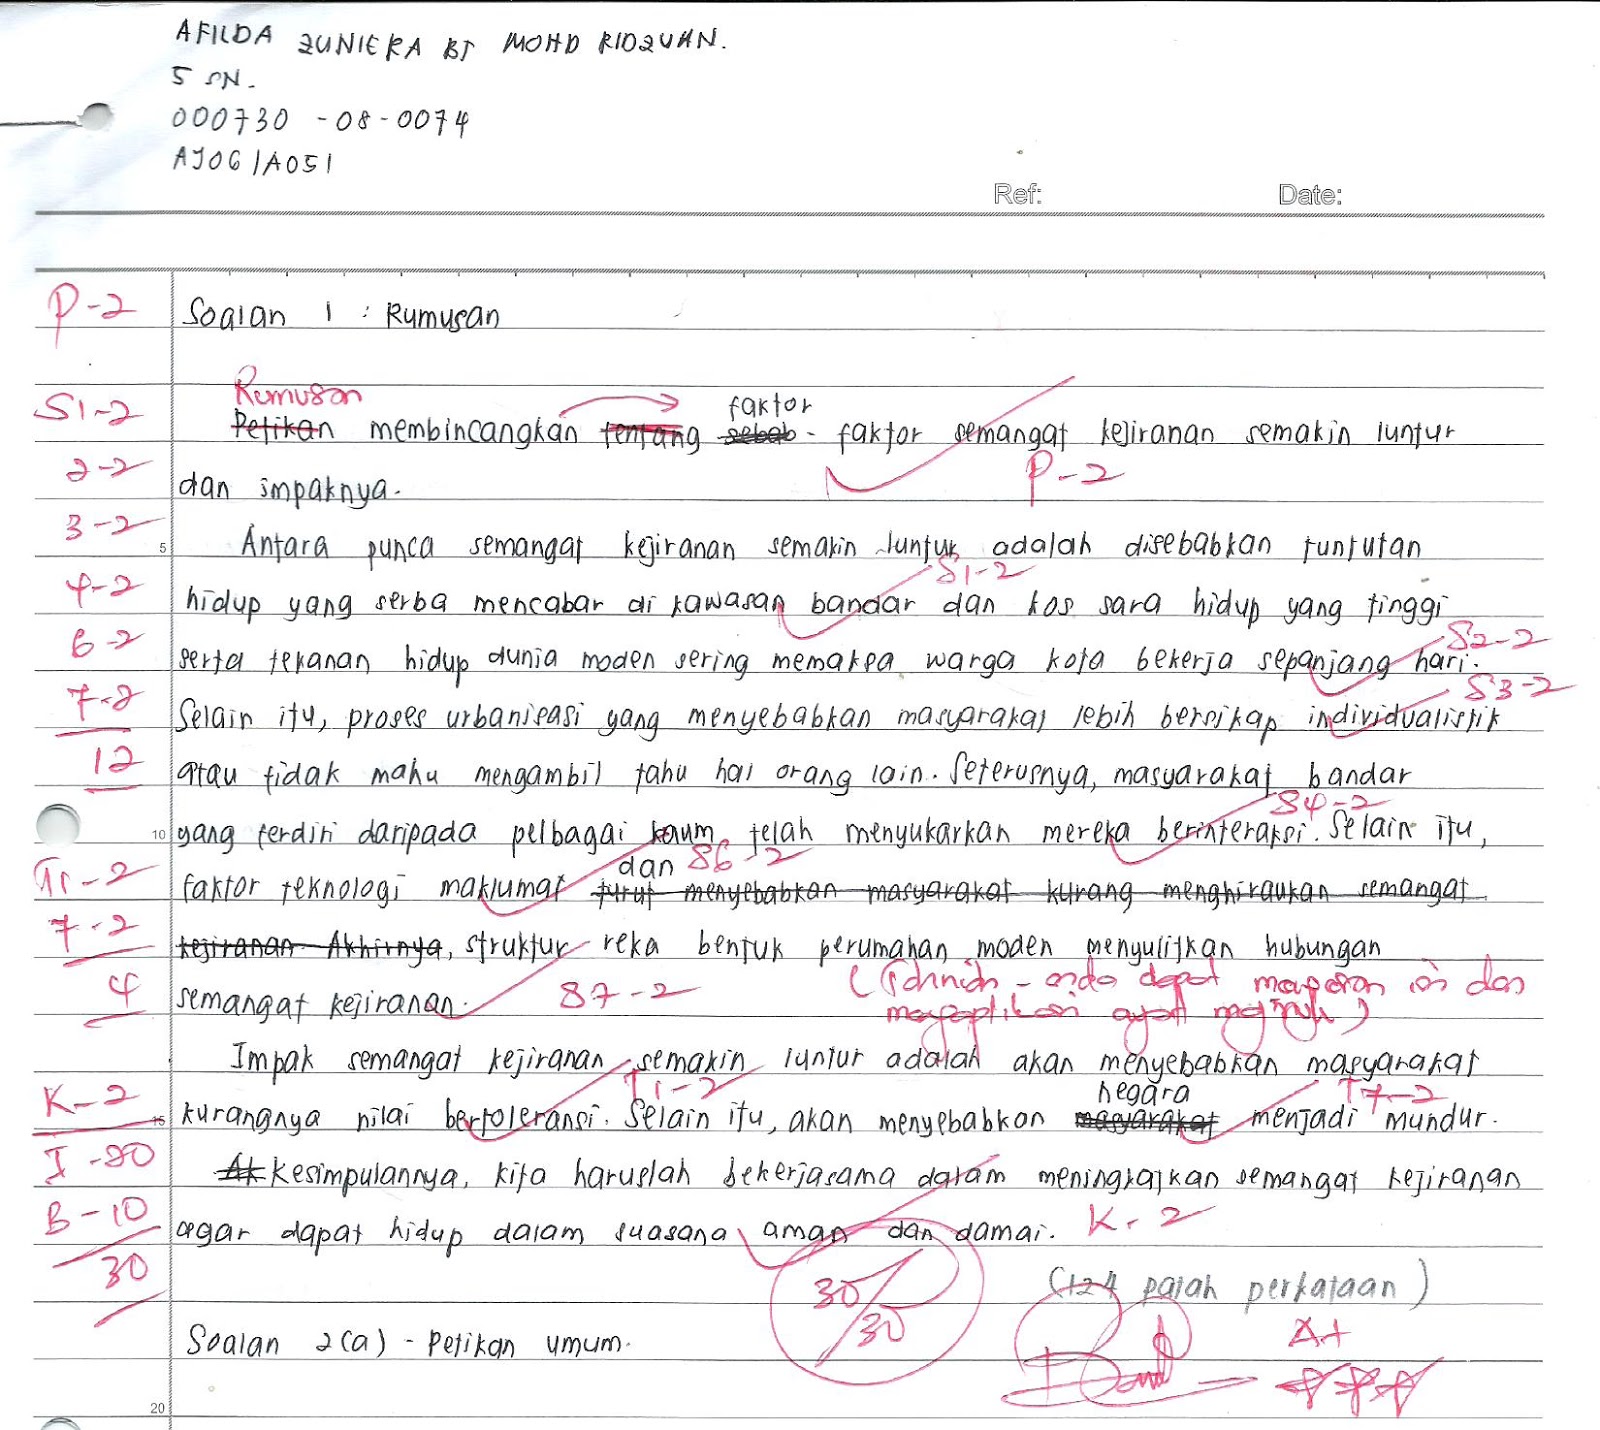 AFILDA ZUNIERA BT MOHD RIDZUAN.
5 SN.
000730 - 08 - 0074
AJ06/A051
Ref: Date:
P-2 Soalan 1 : Rumusan
Rumusan faktor
S1-2 Petikan membincangkan tentang sebab - faktor semangat kejiranan semakin luntur
2-2 dan impaknya. P-2
3-2 5 Antara punca semangat kejiranan semakin luntur adalah disebabkan tuntutan
S1-2
4-2 hidup yang serba mencabar di kawasan bandar dan kos sara hidup yang tinggi
S2-2
6-2 serta tekanan hidup dunia moden sering memaksa warga kota bekerja sepanjang hari.
S3-2
7-2 Selain itu, proses urbanisasi yang menyebabkan masyarakat lebih bersikap individualistik
12 atau tidak mahu mengambil tahu hal orang lain. Seterusnya, masyarakat bandar
S4-2
10 yang terdiri daripada pelbagai kaum telah menyukarkan mereka berinteraksi. Selain itu,
dan S6-2
faktor teknologi maklumat turut menyebabkan masyarakat kurang menghiraukan semangat
7-2 kejiranan Akhirnya, struktur reka bentuk perumahan moden menyulitkan hubungan
4 semangat kejiranan. S7-2
(Tahniah - anda dapat dan
ayat )
Impak semangat kejiranan semakin luntur adalah akan menyebabkan masyarakat
T1-2 negara T7-2
K-2 15 kurangnya nilai bertoleransi. Selain itu, akan menyebabkan masyarakat menjadi mundur.
I-20 Ak Kesimpulannya, kita haruslah bekerjasama dalam meningkatkan semangat kejiranan
B-10 agar dapat hidup dalam suasana aman dan damai. K-2
30 30/30 (124 patah perkataan)
Soalan 2(a) - Petikan umum. A+
20